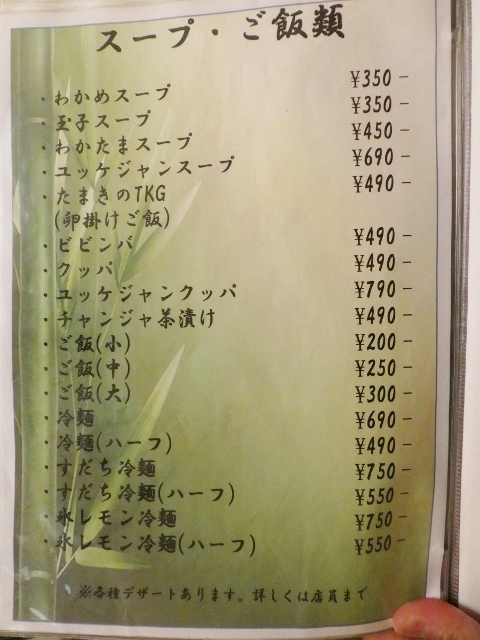 スープ・ご飯類
・わかめスープ ¥350-
・玉子スープ ¥350-
・わかたまスープ ¥450-
・ユッケジャンスープ ¥690-
・たまきのTKG ¥490-
(卵掛けご飯)
・ビビンバ ¥490-
・クッパ ¥490-
・ユッケジャンクッパ ¥790-
・チャンジャ茶漬け ¥490-
・ご飯(小) ¥200-
・ご飯(中) ¥250-
・ご飯(大) ¥300-
・冷麺 ¥690-
・冷麺(ハーフ) ¥490-
・すだち冷麺 ¥750-
・すだち冷麺(ハーフ) ¥550-
・氷レモン冷麺 ¥750-
・氷レモン冷麺(ハーフ) ¥550-
※各種デザートあります。詳しくは店員まで